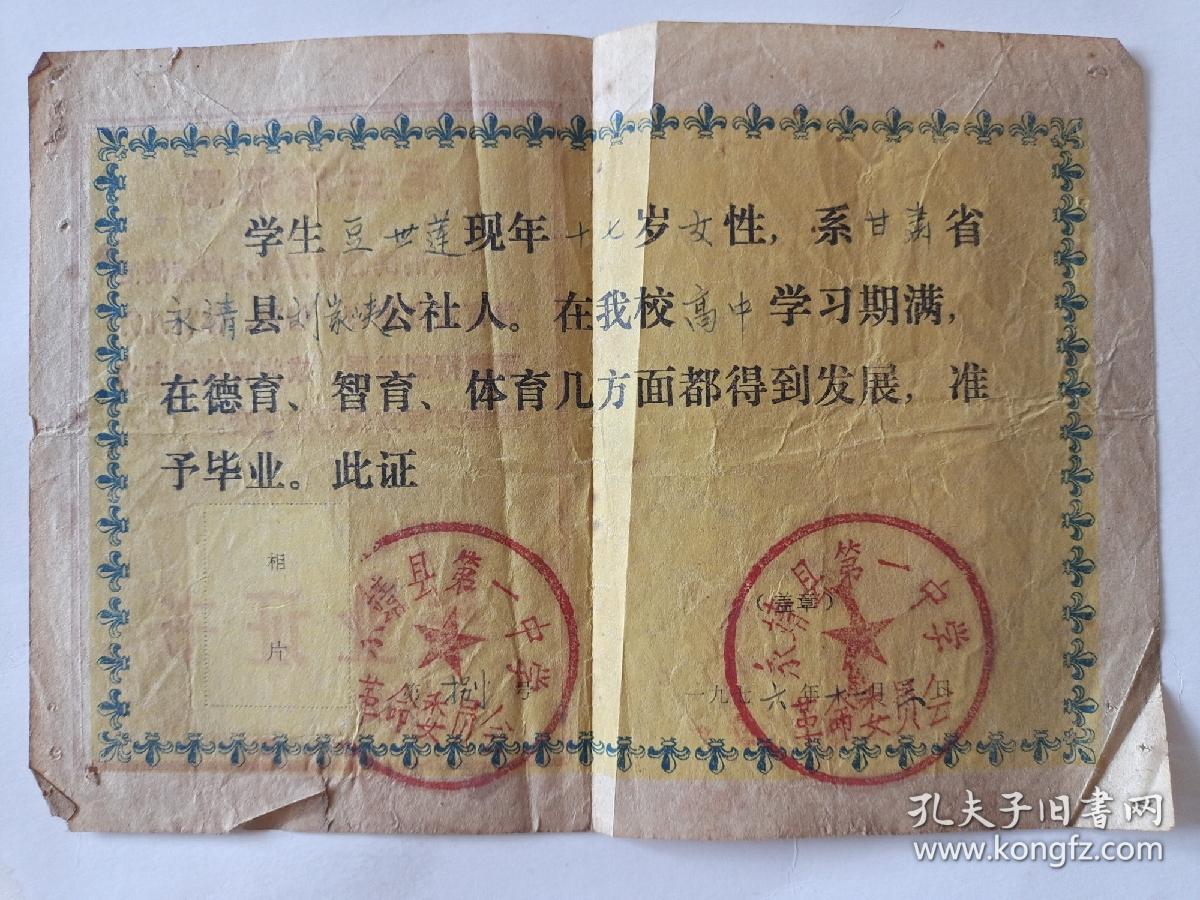 学生豆世莲现年十七岁女性，系甘肃省
永清县刘家峡公社人。在我校高中学习期满，
在德育、智育、体育几方面都得到发展，准
予毕业。此证
相
片
永靖县第一中学
革命委员会
第捌号
（盖章）
永靖县第一中学
革命委员会
一九七六年十一月 日
孔夫子旧书网
www.kongfz.com